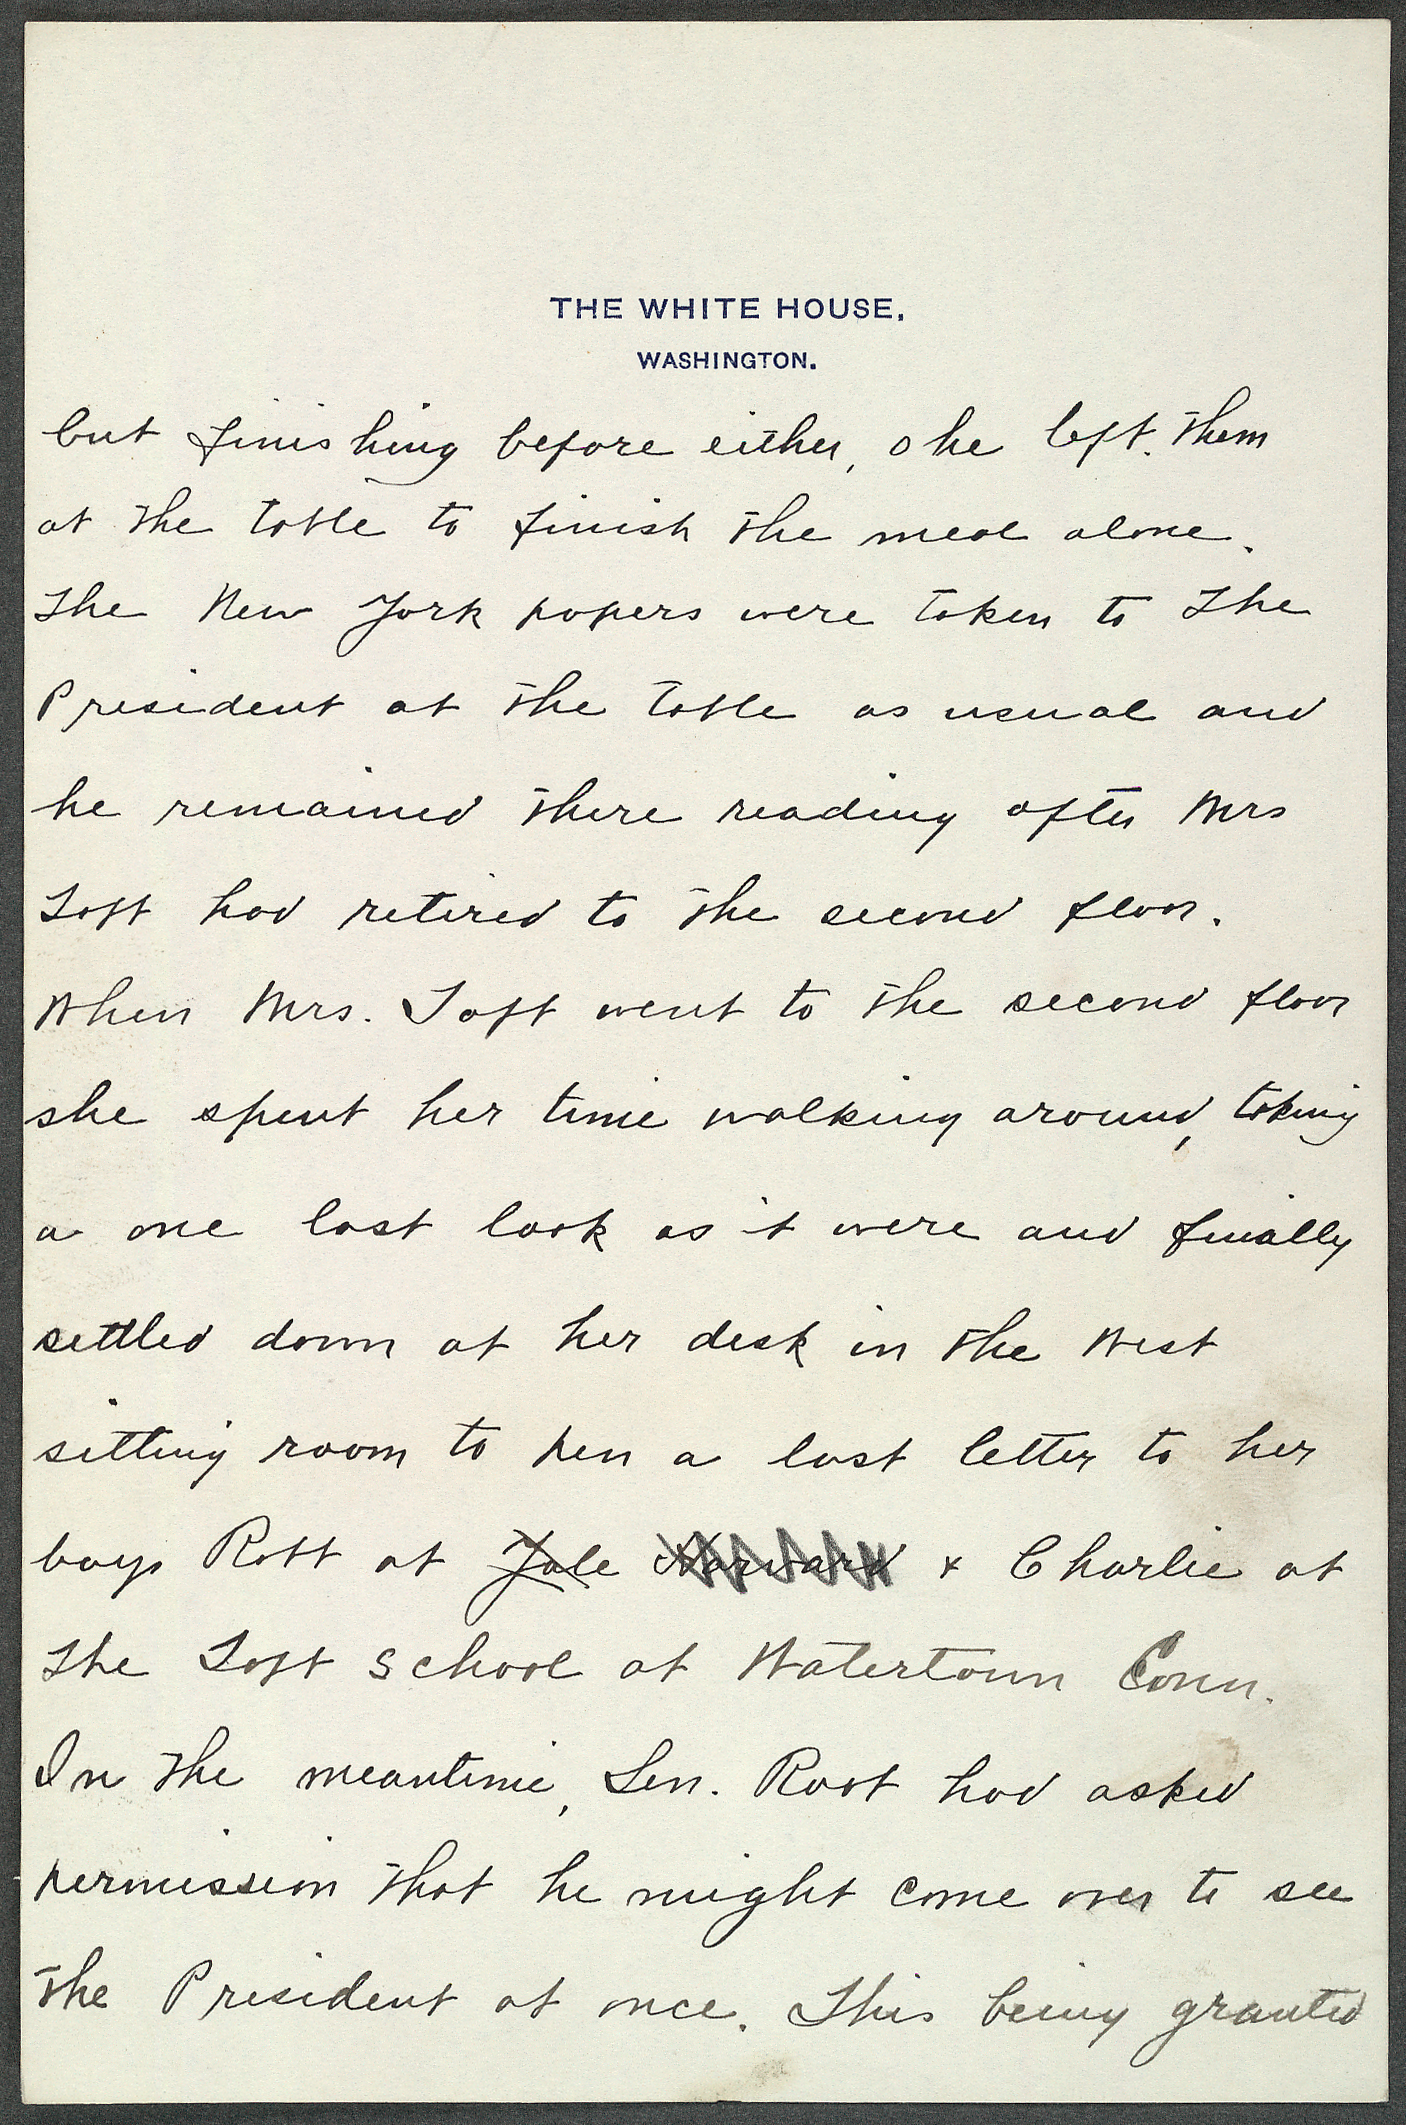 THE WHITE HOUSE,
WASHINGTON.
but finishing before either, she left them
at the table to finish the meal alone.
The New York papers were taken to the
President at the table as usual and
he remained there reading after Mrs
Taft had retired to the second floor.
When Mrs. Taft went to the second floor
she spent her time walking around, taking
a one last look as it were and finally
settled down at her desk in the West
sitting room to pen a last letter to her
boys Robt at Yale Harvard + Charlie at
the Taft School at Watertown Conn.
In the meantime, Sen. Root had asked
permission that he might come over to see
the President at once. This being granted